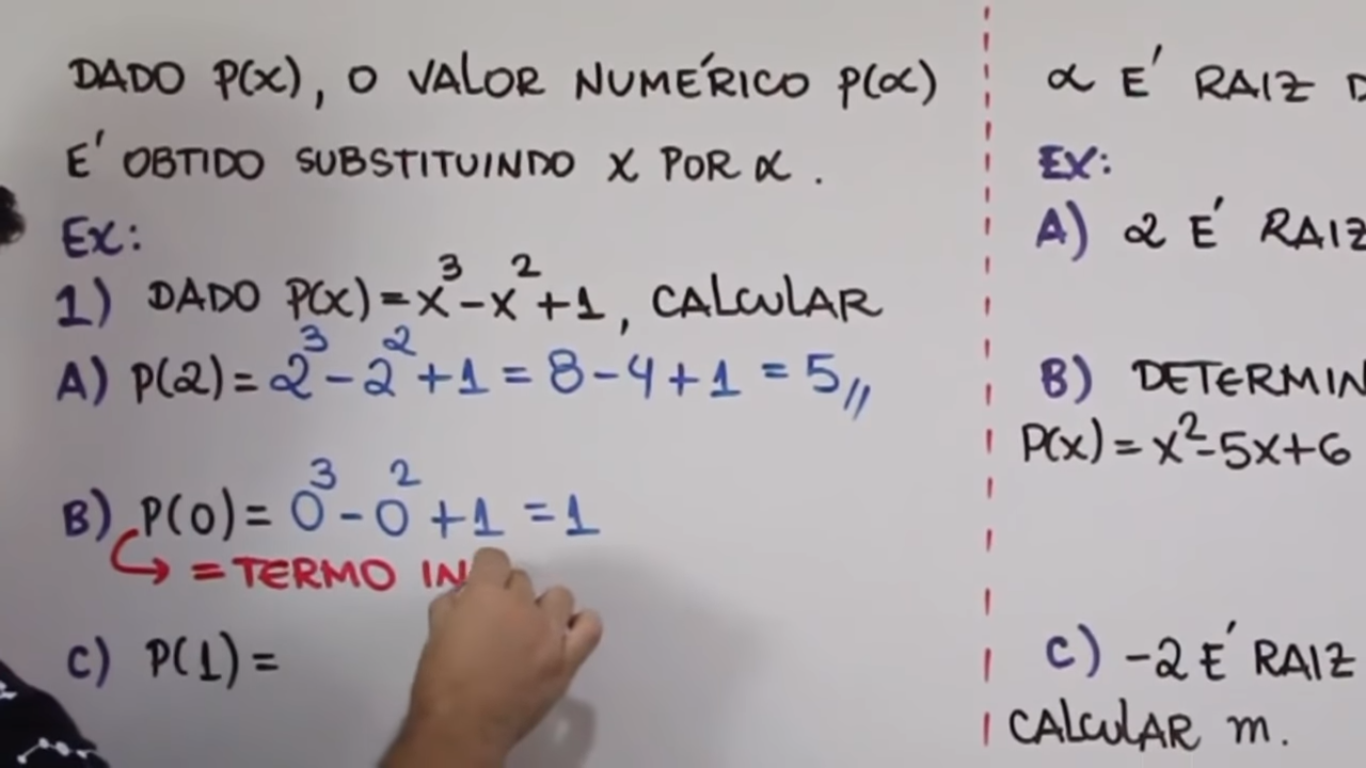 DADO P(x), O VALOR NUMÉRICO P(α)
É OBTIDO SUBSTITUINDO X POR α.
Ex:
1) DADO P(x)=x³-x²+1, CALCULAR
A) P(2)=2³-2²+1=8-4+1=5//
B) P(0)=0³-0²+1=1
= TERMO IN
C) P(1)=
α É RAIZ D
Ex:
A) 2 É RAIZ
B) DETERMIN
P(x)=x²-5x+6
C) -2 É RAIZ
CALCULAR m.